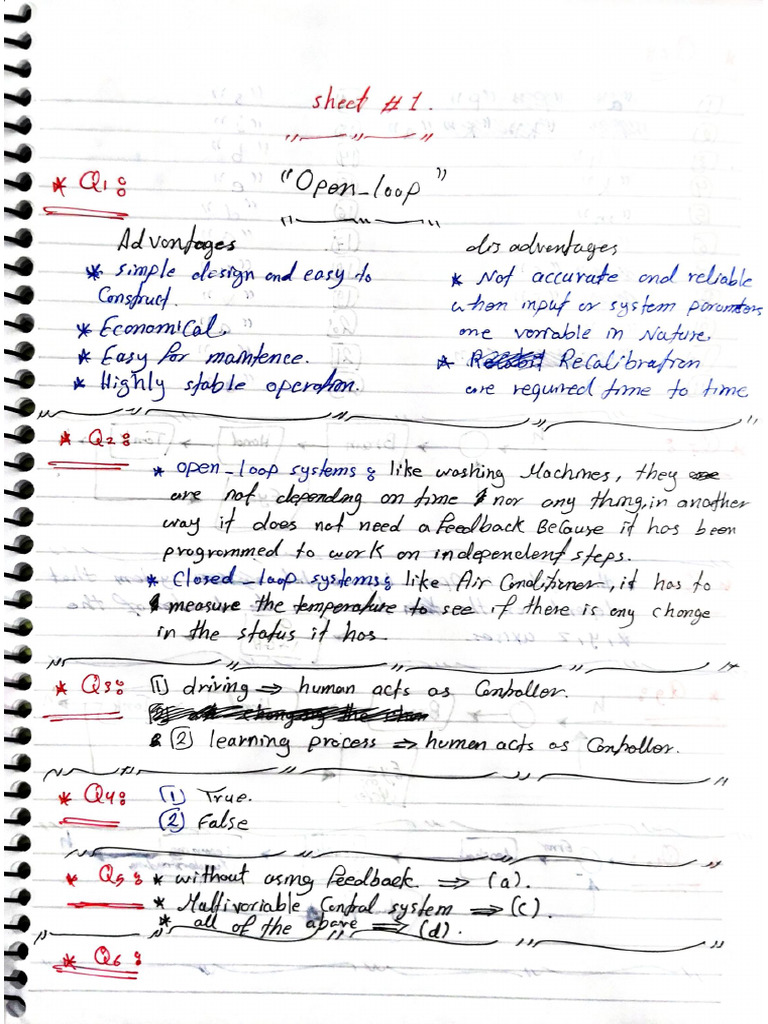 sheet #1.
* Q1:
"Open_loop"
Advantages
* simple design and easy to
Construct.
* Economical.
* Easy for maintence.
* Highly stable operation.
disadventages
* Not accurate and reliable
when input or system parameters
are variable in Nature.
* Recalibration
are required time to time
* Q2:
* open_loop systems: like washing Machines, they
are not depending on time nor any thing, in another
way it does not need a feedback Because it has been
programmed to work on independent steps.
* Closed_loop systems: like Air Conditioner, it has to
measure the temperature to see if there is any change
in the status it has.
* Q3: (1) driving ⇒ human acts as Controller.
(2) learning process ⇒ human acts as Controller.
* Q4: (1) True.
(2) False
* Q5: * without using feedback. ⇒ (a).
* Multivariable Control system ⇒ (c).
* all of the above ⇒ (d).
* Q6: